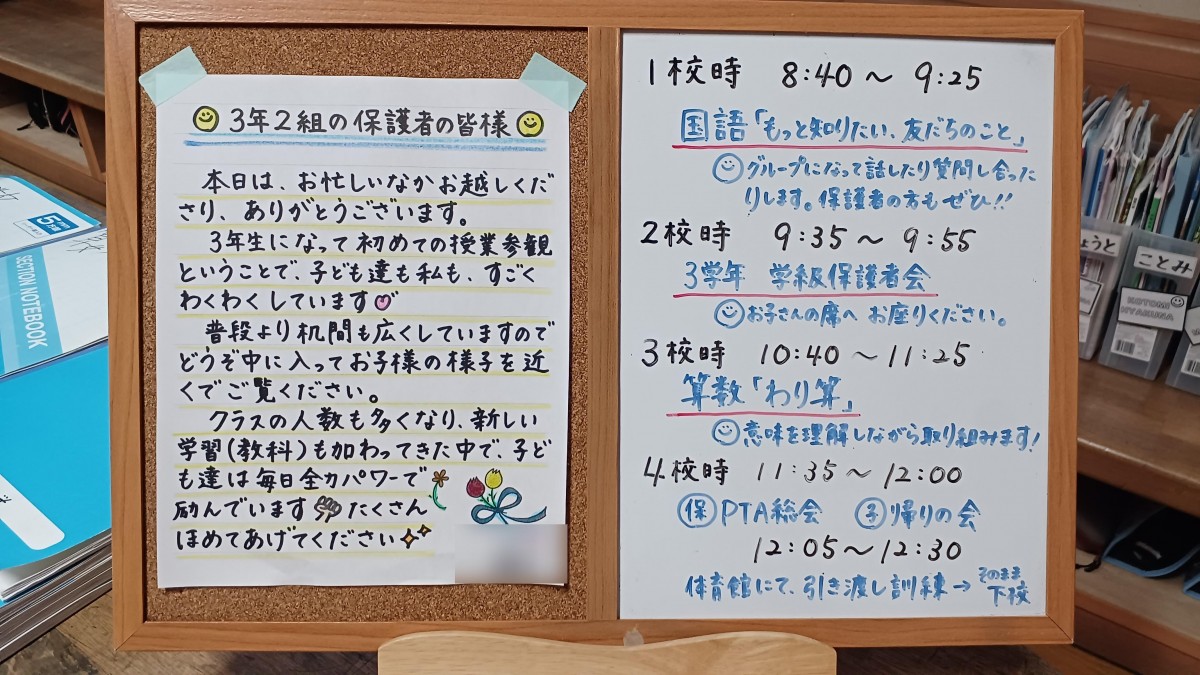 3年2組の保護者の皆様
本日は、お忙しいなかお越しくだ
さり、ありがとうございます。
3年生になって初めての授業参観
ということで、子ども達も私も、すごく
わくわくしています
普段より机間も広くしていますので
どうぞ中に入ってお子様の様子を近
くでご覧ください。
クラスの人数も多くなり、新しい
学習(教科)も加わってきた中で、子ど
も達は毎日全力パワーで
励んでいます たくさん
ほめてあげてください
1校時 8:40〜9:25
国語「もっと知りたい、友だちのこと」
グループになって話したり質問し合った
りします。保護者の方もぜひ!!
2校時 9:35〜9:55
3学年 学級保護者会
お子さんの席へ お座りください。
3校時 10:40〜11:25
算数「わり算」
意味を理解しながら取り組みます!
4校時 11:35〜12:00
保 PTA総会 子 帰りの会
12:05〜12:30
体育館にて、引き渡し訓練→そのまま下校
SECTION NOTEBOOK
ことみ